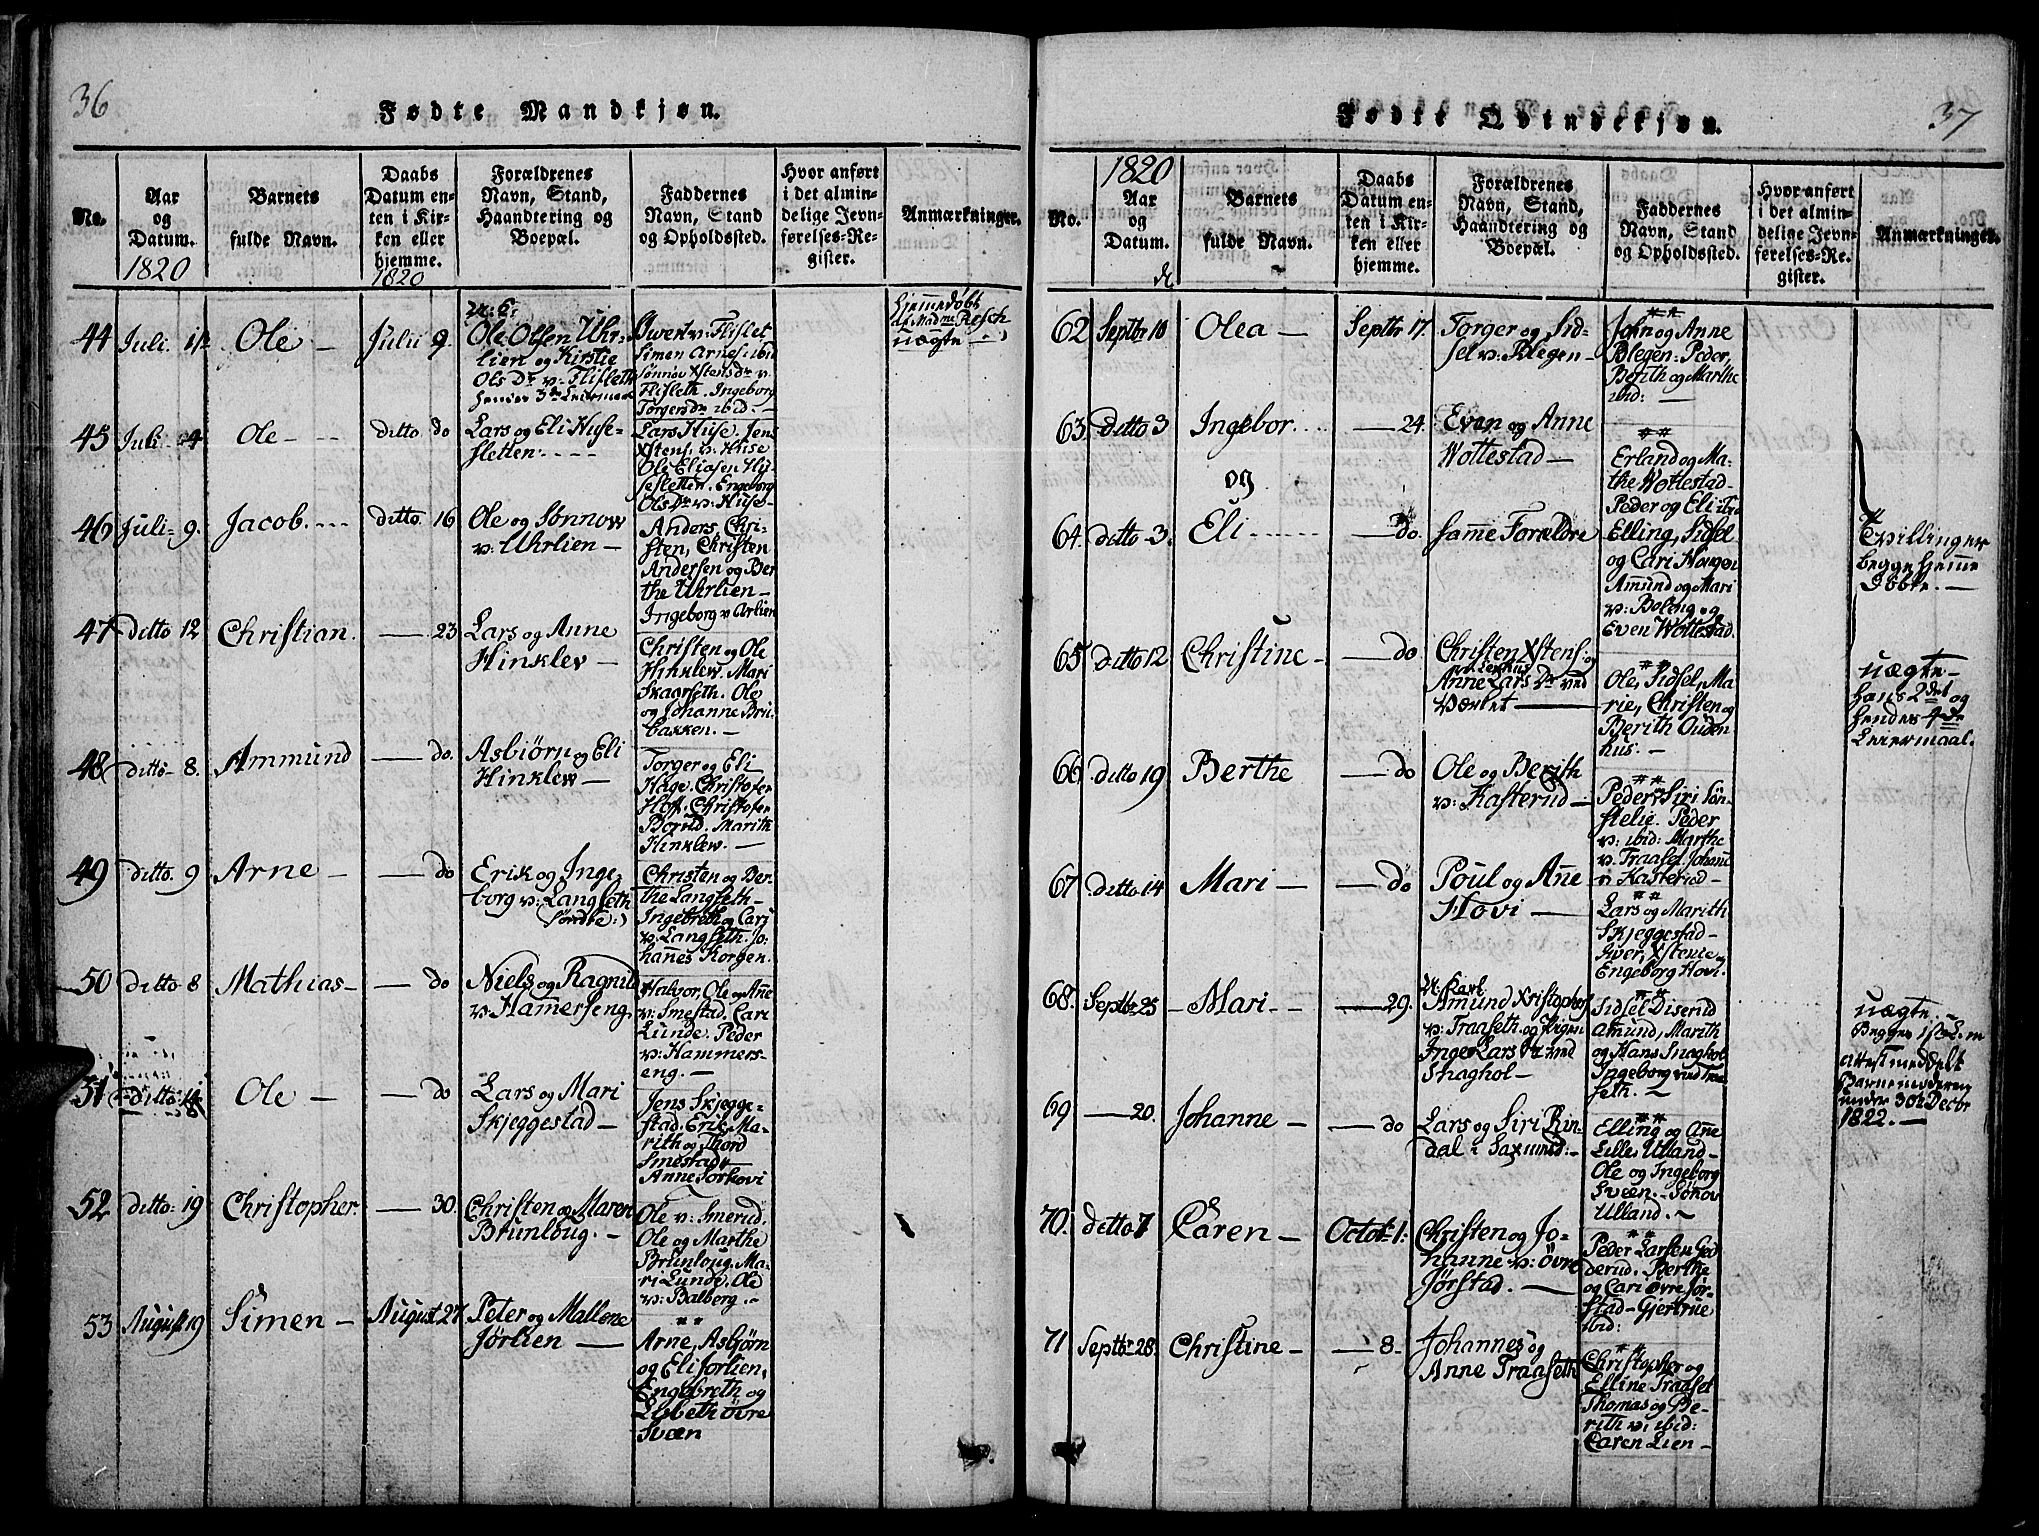 36
Fødte Mandkjøn.
No.
Aar
og
Datum.
1820
Barnets
fulde Navn.
Daabs
Datum en-
ten i Kir-
ken eller
hjemme.
1820
Forældrenes
Navn, Stand,
Haandtering og
Boepæl.
Faddernes
Navn, Stand
og Opholdssted.
Hvor anført
i det almin-
delige Jevn-
førelses-Re-
gister.
Anmærkninger.
44 Juli Ole — Julii 9.
Ole Olsen Uhr-
lien og Kirstie
Olsdr v. Flisleth
hendes 3de Leiermaal
Iwer v. Flislet
Simen Arnes. ibid
Sønnøv Xstensdr v.
Flisleth. Ingeborg
Torgersdr ibid. —
Hjemmedøbt
af Madme Resch
uægte
45 Juli 4 Ole — ditto do
Lars og Eli Huse-
sletten
Lars Huse. Jens
Xstens. v. Huse
Ole Eliasen Hu-
sesletten. Engeborg
Olsdr v. Huse-
46 Juli 9. Jacob. ditto 16
Ole og Sønnow
v. Uhrlien —
Anders, Chri-
sten, Christen
Andersen og Ber
the Uhrlien —
Ingeborg v Arlien
47 ditto 12 Christian. — 23
Lars og Anne
Hinklev —
Christen og Ole
Hinklew. Mari
Skaarseth. Ole
og Johanne Bri-
bakken. —
48 ditto 8. Ammund — do.
Asbiørn og Eli
Hinklew —
Torger og Eli
Hage. Christofer
Hoff. Christofer
Borud. Marith
Hinklew. —
49 ditto 9 Arne — — do
Erik og Inge-
borg v. Langseth
(søndre:)
Christen og Ber-
the Langseth —
Ingebreth og Cari
v. Langseth. Jo-
hanes Korgen.
50 ditto 8 Mathias — — do
Niels og Ragnild
v. Hamerseng.
Halvor, Ole og Anne
v. Smestad. Cari
Lunde. Peder
v. Hammers-
eng. —
51 ditto 14 Ole — — do
Lars og Mari
Skjeggestad —
Jens Skjegge-
stad. Eric Ma-
rith og Thord
Smestad —
Anne Sorkovi
52 ditto 19 Christopher. — 30.
Christen og Maren
Brunloug. —
Ole v. Smerud.
Ole og Marthe
Brunloug. Ma-
ri Lunde. Ole
v. Balberg. —
53 August 19 Simen — August 27
Peter og Mallene
Jørlien —
Arne, Asbjørn
og Eli Jorlien,
Engebreth og
Lisbeth øvre
Svæn
37
Fødte Qvindekjøn.
No.
1820
Aar
og
Datum.
Barnets
fulde Navn.
Daabs
Datum en-
ten i Kir-
ken eller
hjemme.
Forældrenes
Navn, Stand,
Haandtering og
Boepæl.
Faddernes
Navn, Stand
og Opholdssted.
Hvor anført
i det almin-
delige Jevn-
førelses-Re-
gister.
Anmærkninger.
62 Septbr 10 Olea — Septbr 17.
Torger og Sid-
sel v. Blegen —
John og Anne
Blegen. Peder,
Berith og Marthe
ibid: —
63 ditto 3 Ingebor — 24.
Even og Anne
Wottestad —
Erland og Ma-
the Wottestad —
Peder og Eli ibid
og
64. ditto 3. Eli — do.
samme Forældre
Elling, Sidsel
og Cari Horgen
Amund og Mari
v. Boleng og
Even Wottestad.
Tvillinger
begge hjemme
døbte. —
65 ditto 12 Christine — — do
Christen Xstens: og
Anne Larsdr ved
Værket —
Ole, Sidsel, Ma-
rie, Christen og
Berith Ouden
hus. —
uægte —
hans 2det og
hendes 4de
Leiermaal.
66 ditto 19 Berthe — do
Ole og Berith
v. Kasterud —
Peder Siri, Søn-
stelie. Peder
v. ibid: Marthe
v. Traaset, Johanne
v Kasterud —
67 ditto 14 Mari — — do
Poul og Anne
Hovi —
Lars og Marith
Skjeggestad —
Iver, Xstence
Engeborg Hovi.
68. Septbr 25 Mari — — 29.
Amund Xristophs
v. Traaseth og Pigen
Inger Larsdr ved
Snaghol —
Sidsel Diserud
Amund, Marith
og Hans Snaghol
Ingeborg ved Traa-
seth. —
uægte. —
Begges 1ste L. m
attest meddelt
Barnemoderen
under 30te Decbr
1822. —
69 — 20. Johanne — — do
Lars og Siri Rin-
dal i
Elling og Anne
Lille Ulland —
Ole og Ingeborg
Sveen. — Sønov
Ulland. —
70. ditto 7 Caren — Octob. 1.
Christen og Jo-
hanne v. øvre
Jørstad. —
Peder Larsen God
derud. Berthe
og Cari øvre Jør-
stad — Gjertrue
ibid:
71 Septbr 28. Christine — — 8.
Johannes og
Anne Traaseth
Christopher og
Elline Traaset
Thomas og Be-
rith v. ibid:
Caren Lien —